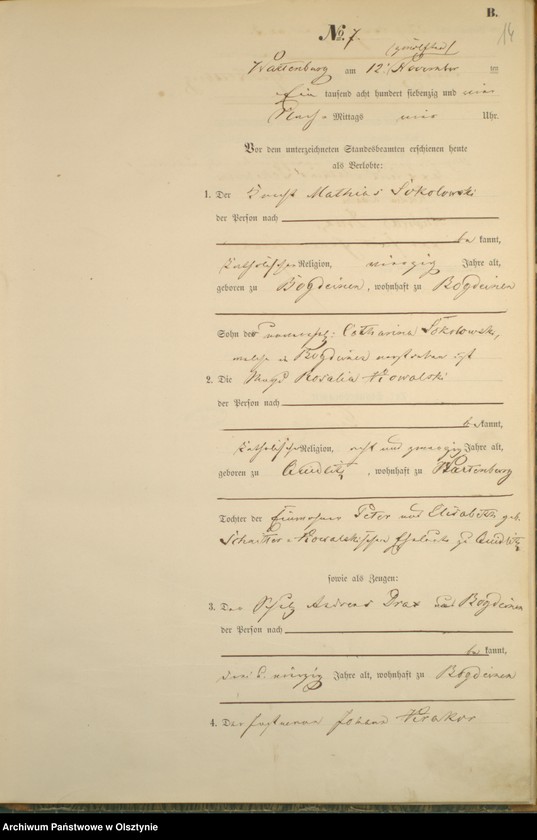 B.
14
No. 7.
(zwölften)
Wartenburg am 12ten November
Ein tausend acht hundert siebenzig und vier
Nach-Mittags vier Uhr.
Vor dem unterzeichneten Standesbeamten erschienen heute
als Verlobte:
1. Der Knecht Mathias Sokolowski
der Person nach
be kannt,
katholischer Religion, vierzig Jahre alt,
geboren zu Bogdeinen, wohnhaft zu Bogdeinen
Sohn der unverehel: Catharina Sokolowski,
welche in Bogdeinen verstorben ist
2. Die Magd Rosalia Kowalski
der Person nach
be kannt,
katholischer Religion, acht und zwanzig Jahre alt,
geboren zu , wohnhaft zu Wartenburg
Tochter der Einwohner Peter und Elisabeth geb.
Kowalskischen Eheleute zu
sowie als Zeugen:
3. Der Andreas Drax aus Bogdeinen
der Person nach
be kannt,
drei u. vierzig Jahre alt, wohnhaft zu Bogdeinen
4. Der Johann
Archiwum Państwowe w Olsztynie